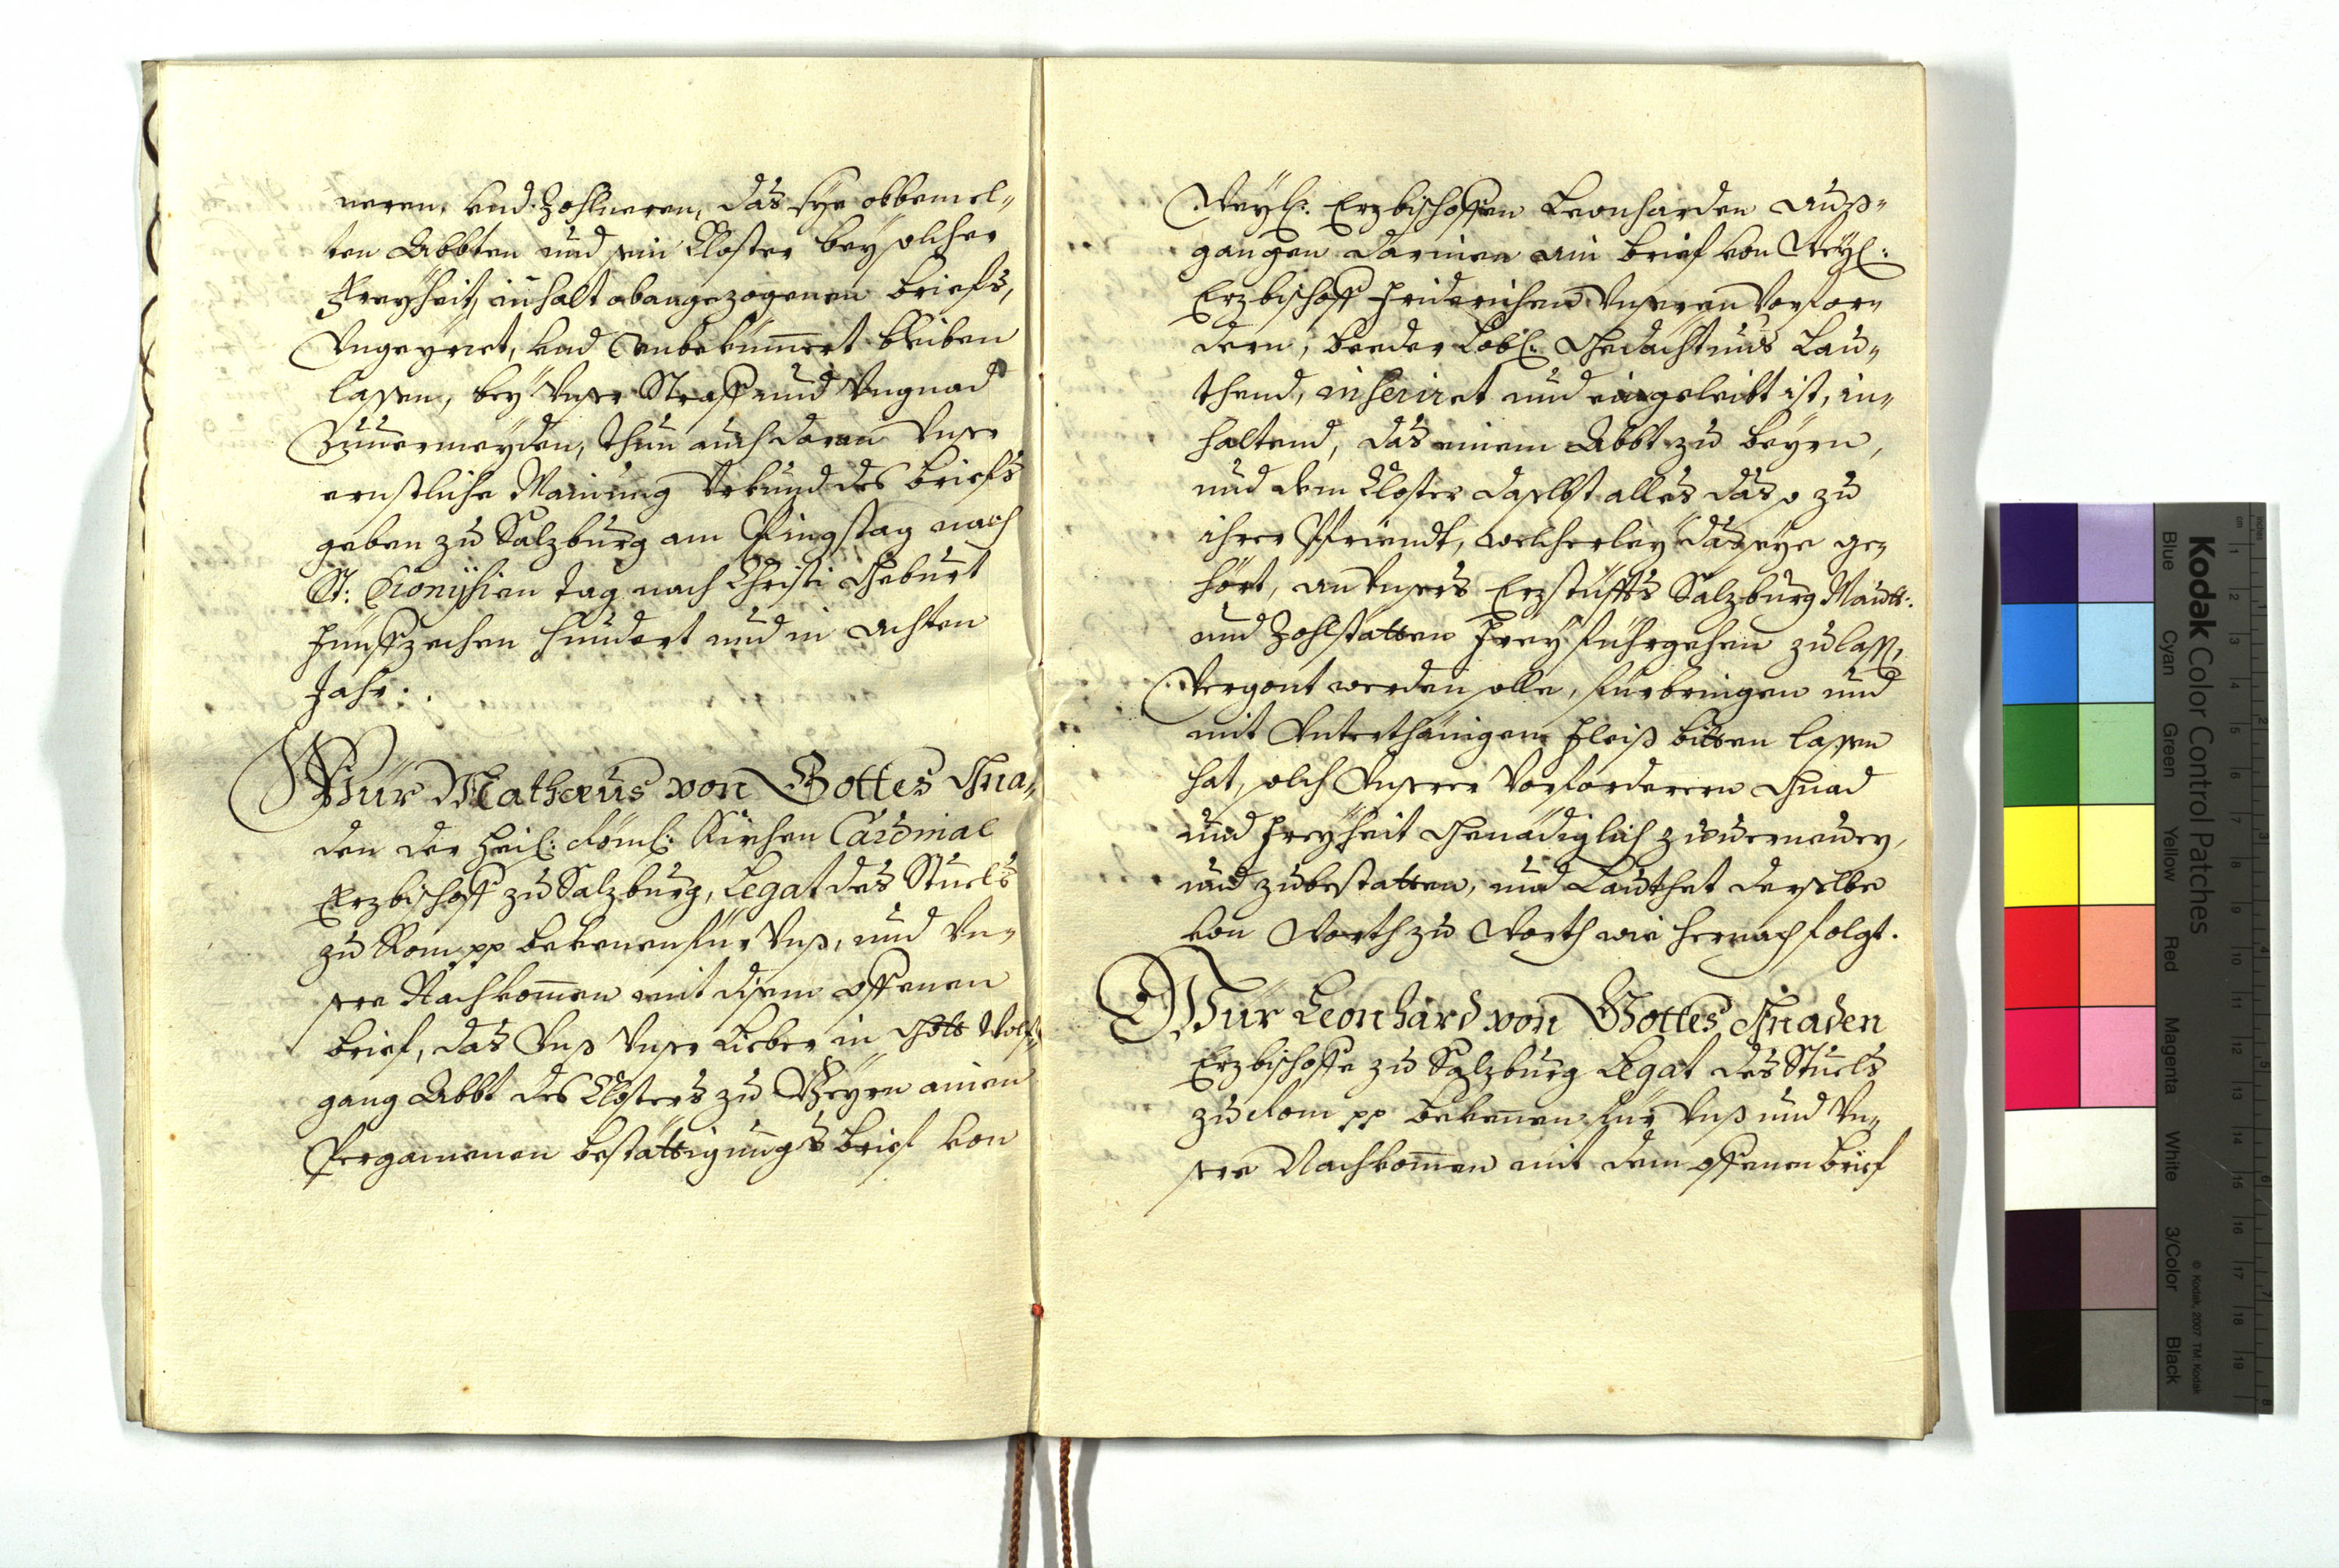 neren, und Zohlneren, das sye obbemel„
ten Abbten und sein Closter bey solcher
Freyheit, inhalt obangezogenen briefs,
Ungeyrret, und Unbekümert bleiben
lassen, bey Unser Straff und Ungnad
Zuuermeyden, thun auch daran Unser
ernstliche Mainung Urkund des briefs
geben zu Salzburg am Pfingstag nach
St: Dionÿsien tag nach Christi Geburt
Fünffzechen hundert und in achten
Jahr.
Wür Mathæus von Gottes Gna„
den der heil: Röml: Kirchen Cardinal
Erzbischoff zu Salzburg, Legat des Stuels
zu Rom pp bekenen für Unß, und Un„
sere Nachkomen mit disem offenen
brief, das Unß Unser Lieber in Gott Wolf„
gang Abbt des Closters zu Beyrn ainen
Pergamenen bestättigungs brief von
Weyl: Erzbischoffen Leonharden auß„
gangen darinen ain brief von Weyl:
Erzbischoff Friderichen Unseren Vorfor„
dern, beeder Löbl: Gedächtnus Lau„
thend, inseriret und eingeleibt ist, in„
haltend, das einem Abbt zu beyrn,
und dem Closter daselbst alles das so zu
ihrer Pfriendt, welcherley das seye ge„
hört, an Unsers Erzstüffts Salzburg Mautt:
und Zohlstatten Frey führgehen zu lass,
Vergont werden solle, fürbringen und
mit Unterthänigem Fleiß bitten lassen
hat, solch Unserer Vorforderern Gnad
und Freyheit Genädiglich zuuerneuern,
und zubestatten, und Lauthet derselbe
von Worth zu Worth wie hernach folgt.
Wür Leonhard von Gottes Gnaden
Erzbischoffe zu Salzburg Legat des Stuels
zu Rom pp bekenen für Unß und Un„
sere Nachkomen mit dem offenen brief
Kodak Color Control Patches
© Kodak, 2007 TM: Kodak
Blue Cyan Green Yellow Red Magenta White 3/Color Black